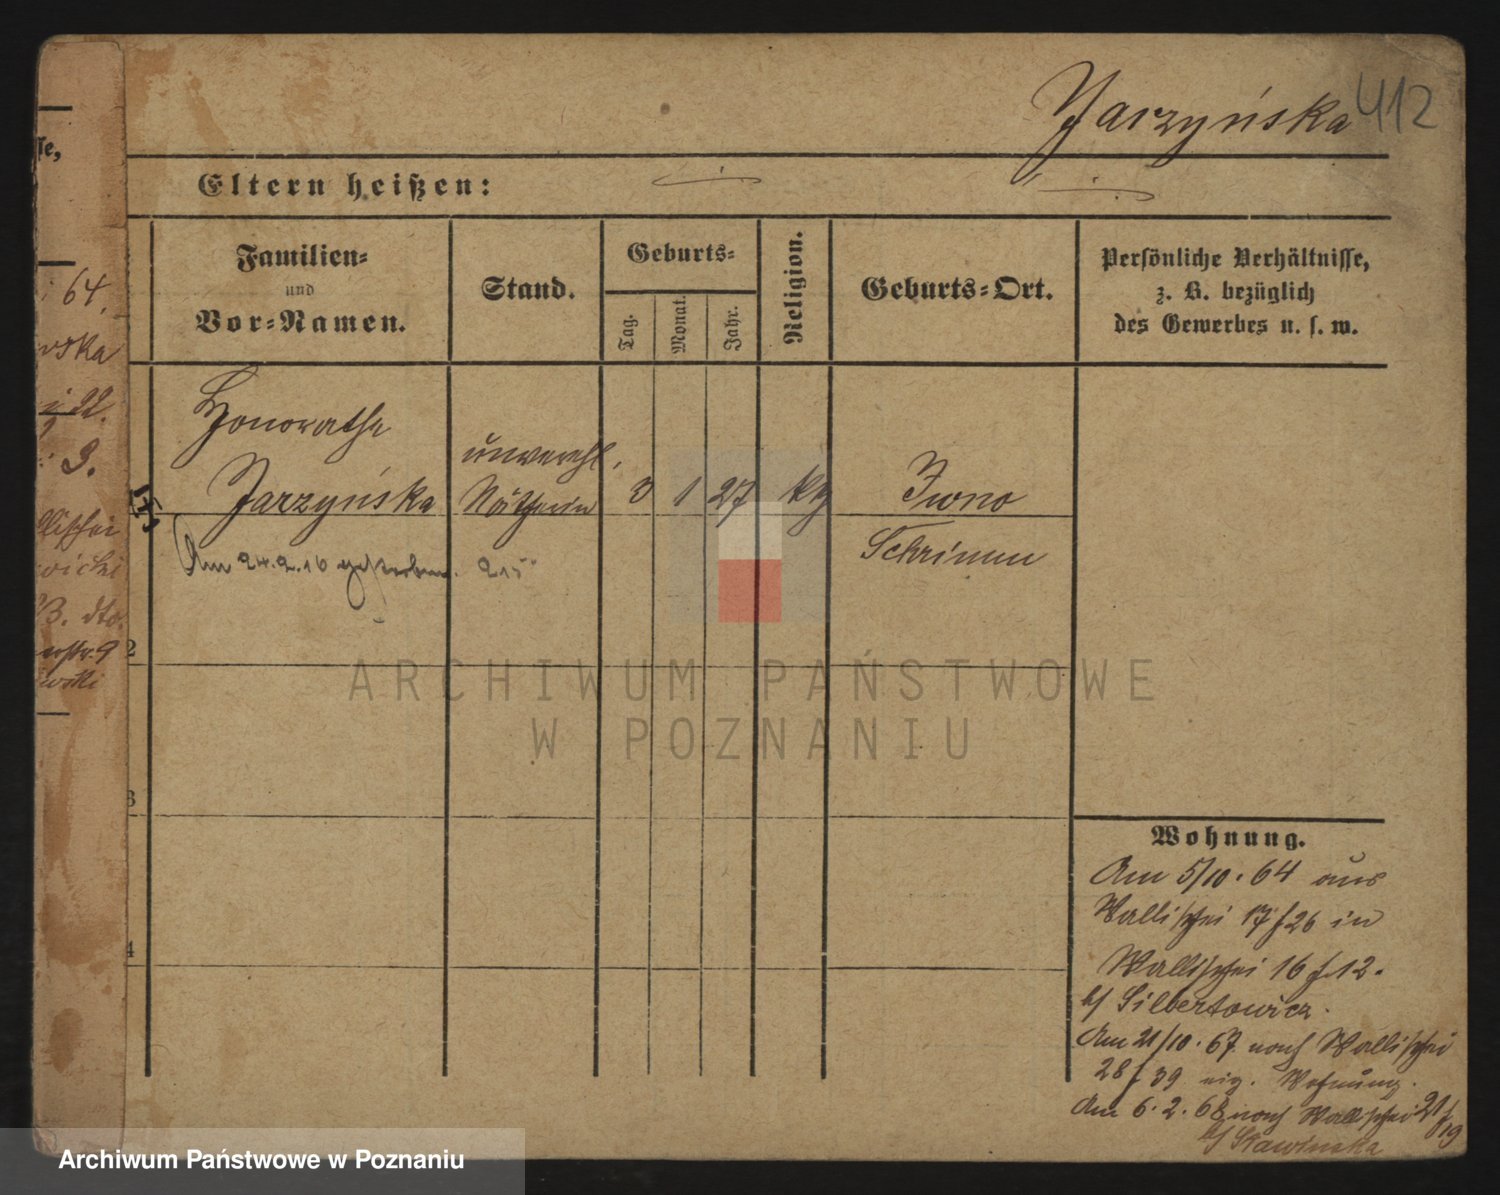 Jarzyńska 412
Eltern heißen:
Familien-
und
Vor-Namen.
Stand.
Geburts-
Tag.
Monat.
Jahr.
Religion.
Geburts-Ort.
Persönliche Verhältnisse,
z. B. bezüglich
des Gewerbes u. s. w.
Honoratha
unverehl.
Jarzyńska Nätherin 3 1 27 kth Iwno
Schrimm
Am 24.2.10 gestorben. 215
2
3
4
Wohnung.
Am 5/10. 64 aus
Wallischei 17/26 in
Wallischei 16/12.
b/ Silbertowicz.
Am 21/10. 67 nach Wallischei
28/39 eig. Wohnung.
Am 6. 2. 68 nach Wallischei 21/19
b/ Stawinska
se,
64.
wska
22.
9.
llischei
wicki
B. dto.
erstr. 9
ewski
ARCHIWUM PAŃSTWOWE
W POZNANIU
Archiwum Państwowe w Poznaniu